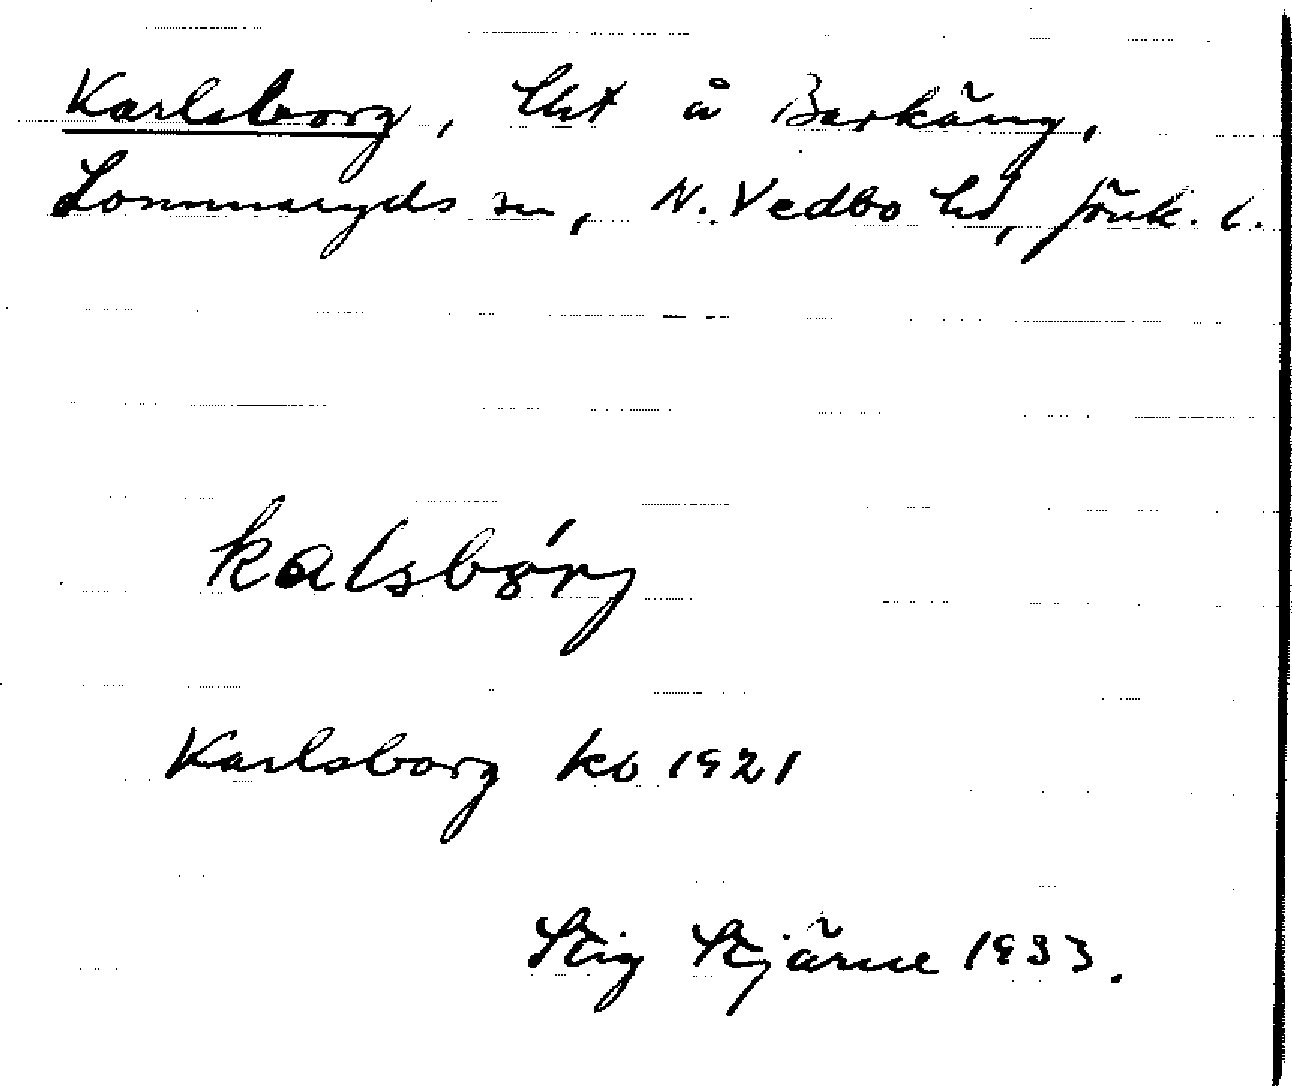 Karlsborg, lht å Barkäng,
Lommaryds sn, N. Vedbo hd, Jönk. l.
kalsbórj
Karlsborg kb 1921
Stig Stjärne 1933.